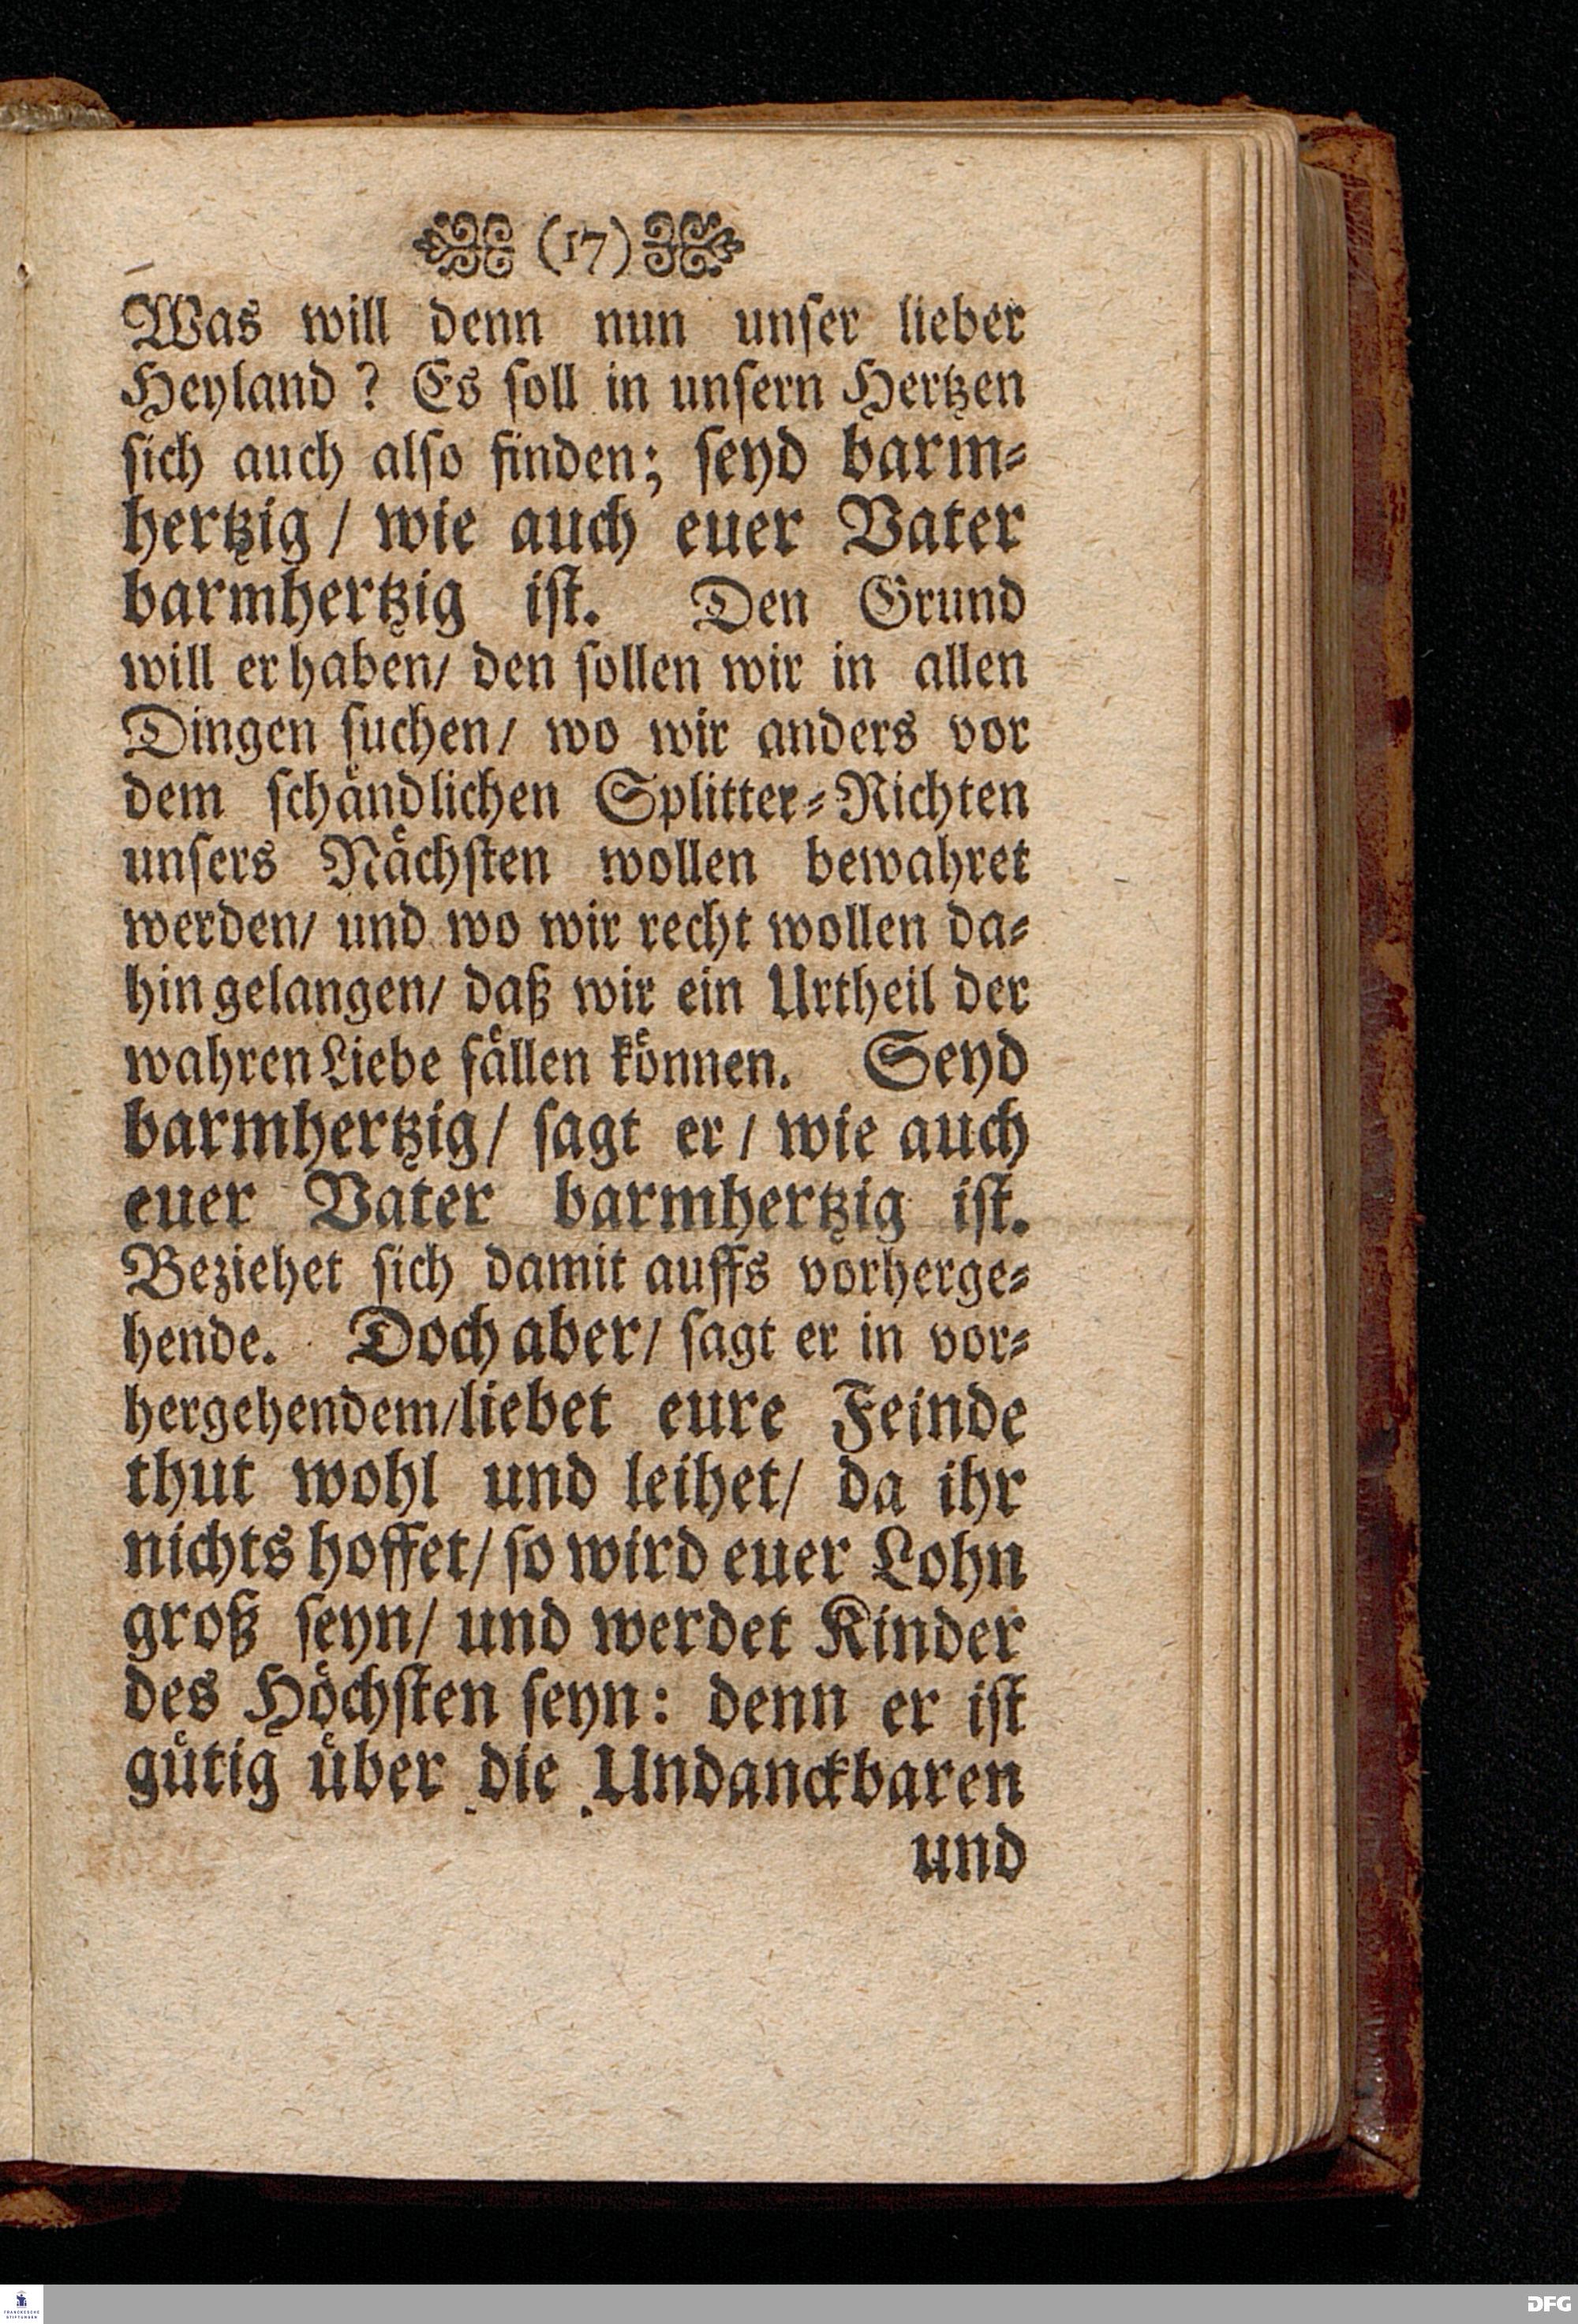 (17)
Was will denn nun unser lieber
Heyland? Es soll in unsern Hertzen
sich auch also finden; seyd barm-
hertzig / wie auch euer Vater
barmhertzig ist. Den Grund
will er haben/ den sollen wir in allen
Dingen suchen/ wo wir anders vor
dem schändlichen Splitter-Richten
unsers Nächsten wollen bewahret
werden/ und wo wir recht wollen da-
hin gelangen/ daß wir ein Urtheil der
wahren Liebe fällen können. Seyd
barmhertzig/ sagt er/ wie auch
euer Vater barmhertzig ist.
Beziehet sich damit auffs vorherge-
hende. Doch aber/ sagt er in vor-
hergehendem/ liebet eure Feinde
thut wohl und leihet/ da ihr
nichts hoffet/ so wird euer Lohn
groß seyn/ und werdet Kinder
des Höchsten seyn: denn er ist
gütig über die Undanckbaren
und
FRANCKESCHE
STIFTUNGEN
DFG